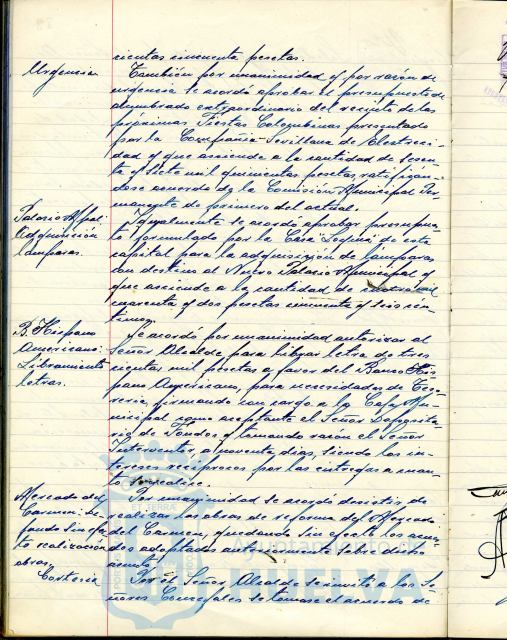 cientas cincuenta pesetas.
Urgencia
También por unanimidad y por razón de
urgencia se acordó aprobar el presupuesto de
alumbrado extraordinario del recinto de las
próximas Fiestas Colombinas presentado
por la Compañía Sevillana de Electrici-
dad y que asciende a la cantidad de sesen-
ta y siete mil quinientas pesetas, ratificán-
dose acuerdo de la Comisión Municipal Per-
manente de primero del actual.
Palacio Mpal.
Adquisición
lámparas.
Igualmente se acordó aprobar presupues-
to formulado por la Casa de esta
capital para la adquisición de lámparas
con destino al Nuevo Palacio Municipal y
que asciende a la cantidad de mil
cuarenta y dos pesetas cincuenta y seis cén-
timos.
B. Hispano
Americano:
Libramiento
letras.
Se acordó por unanimidad autorizar al
Señor Alcalde para librar letra de tres
cientas mil pesetas a favor del Banco His-
pano Americano, para necesidades de Teso-
rería, firmando con cargo a la Caja Mu-
nicipal como aceptante el Señor Deposita-
rio de Fondos y tomando razón el Señor
Interventor, a noventa días, siendo los in-
tereses recíprocos por las entregas a cuen-
ta
Mercado del
Carmen:
sin efec-
to realización
obras.
Por unanimidad se acordó desistir de
realizar las obras de reforma del Mercado
del Carmen, quedando sin efecto los acuer-
dos adoptados anteriormente sobre dicho
asunto.
Cortesía
Por el Señor Alcalde se invitó a los Se-
ñores Concejales se tomase el acuerdo de
Ayuntamiento
HUELVA